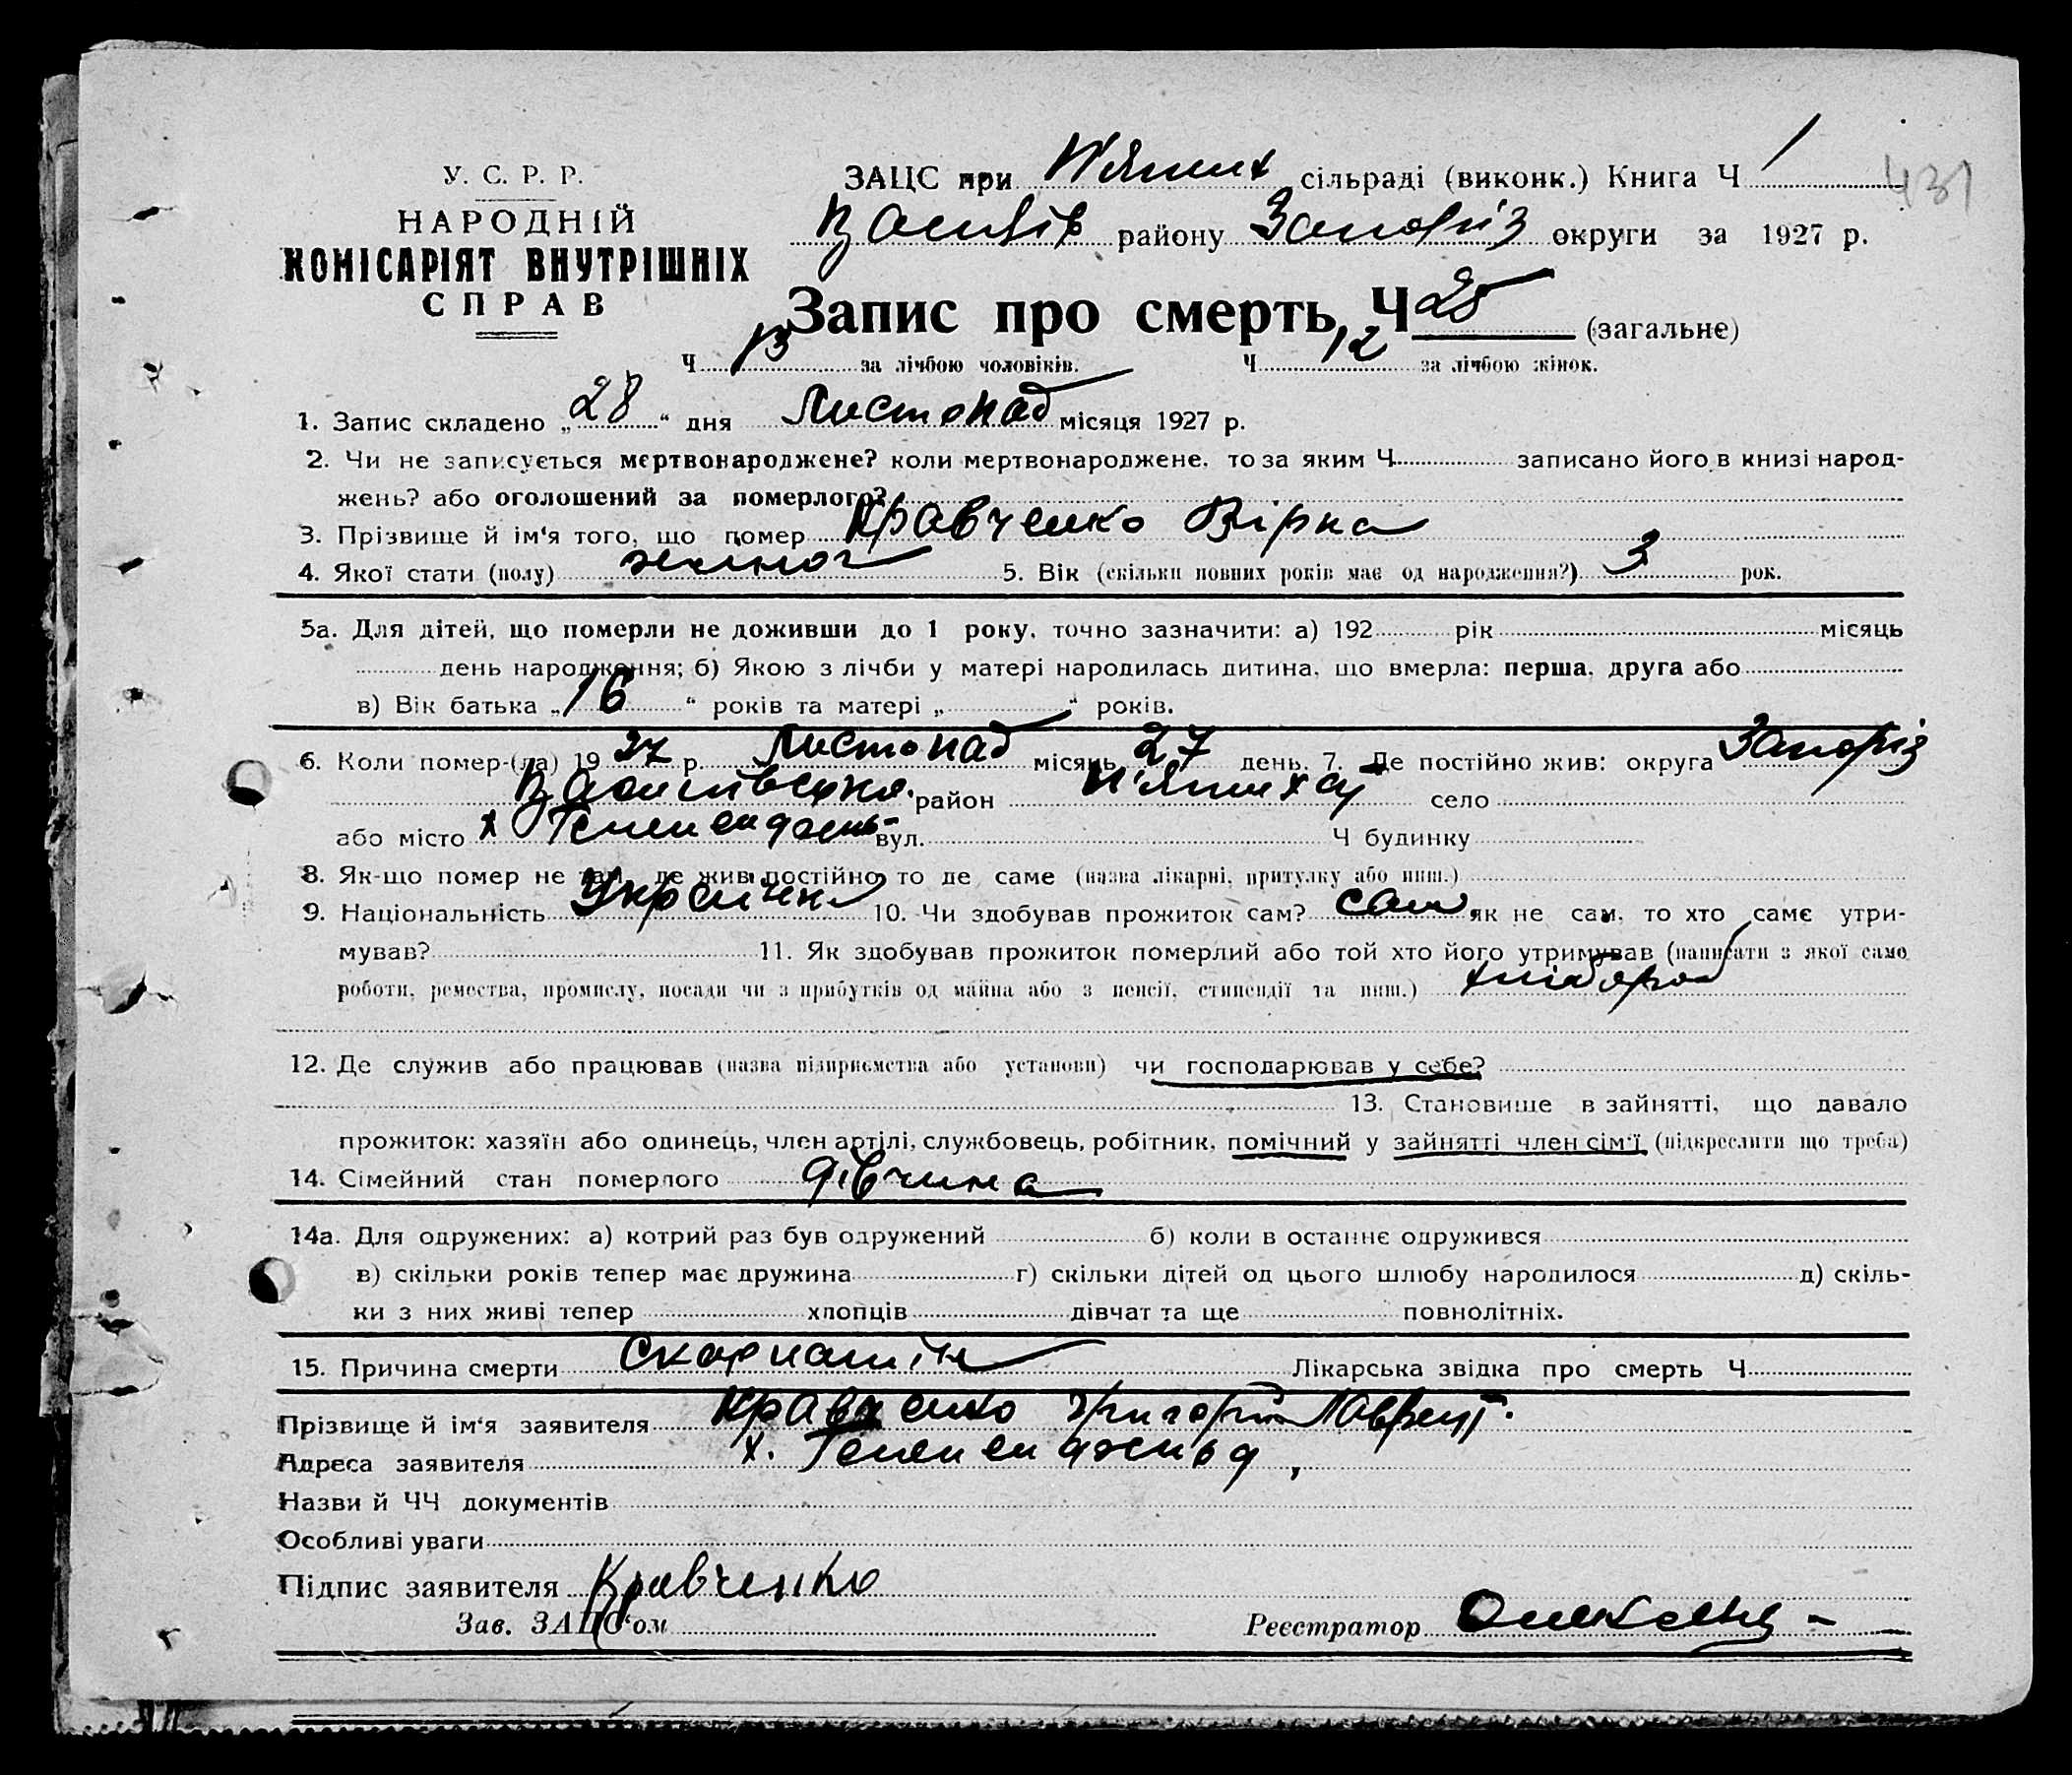 У. С. Р. Р.
НАРОДНІЙ
КОМІСАРІЯТ ВНУТРІШНІХ
СПРАВ
ЗАЦС при П'ятих сільраді (виконк.) Книга Ч 1
431
Василів району Запоріз округи за 1927 р.
Запис про смерть Ч 25 (загальне)
Ч 13 за лічбою чоловіків. Ч 12 за лічбою жінок.
1. Запис складено „28“ дня Листопад місяця 1927 р.
2. Чи не записується мертвонароджене? коли мертвонароджене, то за яким Ч записано його в книзі народ-
жень? або оголошений за померлого?
3. Прізвище й ім'я того, що помер Кравченко Вірка
4. Якої стати (полу) жиноч 5. Вік (скільки повних років має од народження?) 3 рок.
5а. Для дітей, що померли не доживши до 1 року, точно зазначити: а) 192 рік місяць
день народження; б) Якою з лічби у матері народилась дитина, що вмерла: перша, друга або
в) Вік батька „16“ років та матері „ “ років.
6. Коли помер-(ла) 1927 р. Листопад місяць 27 день. 7. Де постійно жив: округа Запоріз
район село
або місто х вул. Ч будинку
8. Як-що помер не там, де жив постійно то де саме (назва лікарні, притулку або инш.)
9. Національність 10. Чи здобував прожиток сам? сам як не сам, то хто саме утри-
мував? 11. Як здобував прожиток померлий або той хто його утримував (написати з якої само
роботи, ремества, промислу, посади чи з прибутків од майна або з пенсії, стипендії та инш.) хлібороб
12. Де служив або працював (назва підприємства або установи) чи господарював у себе?
13. Становище в зайнятті, що давало
прожиток: хазяїн або одинець, член артілі, службовець, робітник, помічний у зайнятті член сім'ї (підкреслити що треба)
14. Сімейний стан померлого дівчина
14а. Для одружених: а) котрий раз був одружений б) коли в останнє одружився
в) скільки років тепер має дружина г) скільки дітей од цього шлюбу народилося д) скіль-
ки з них живі тепер хлопців дівчат та ще повнолітніх.
15. Причина смерти Скорлатін Лікарська звідка про смерть Ч
Прізвище й ім'я заявителя Кравченко Григорій Лаврент.
Адреса заявителя х.
Назви й ЧЧ документів
Особливі уваги
Підпис заявителя Кравченко
Зав. ЗАЦС'ом Реєстратор